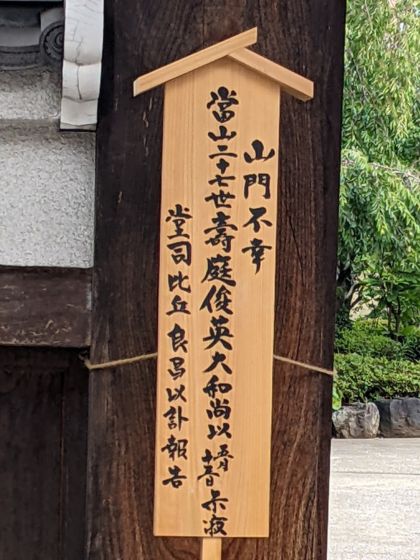 山門不幸
當山二十七世壽庭俊英大和尚以五月示寂
堂司比丘良昌以訃報告